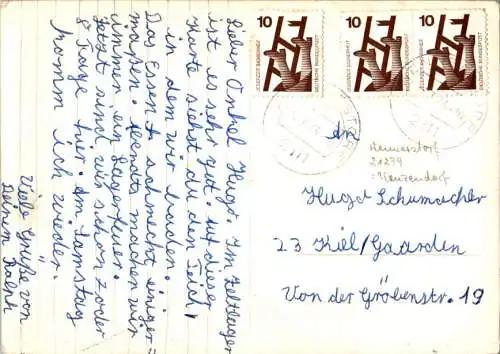 Lieber Onkel Hugo. Im Zeltlager
ist es sehr gut. Auf dieser
Karte siehst du den Teich,
in dem wir baden.
Das Essen schmeckt einiger=
maßen. Abends machen wir
immer ein Lagerfeuer.
Jetzt sind wir schon 7 oder
8 Tage hier. Am Samstag
komm ich wieder.
Viele Grüße von
Deinem Ralph
10
DEUTSCHE BUNDESPOST
10
10
DEUTSCHE BUNDESPOST
An
21299
Hugo Schumacher
23 Kiel/Gaarden
Von der Gröbenstr. 19